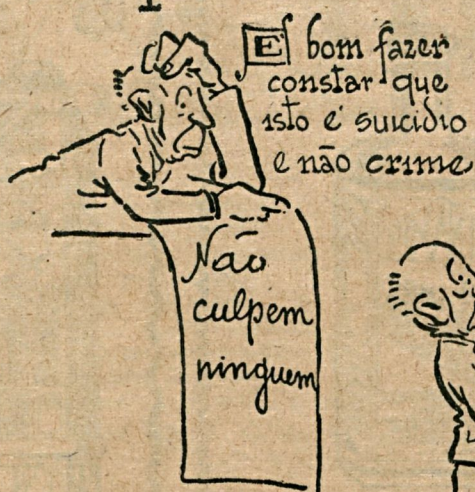 E' bom fazer
constar que
isto é suicidio
e não crime
Não
culpem
ninguem